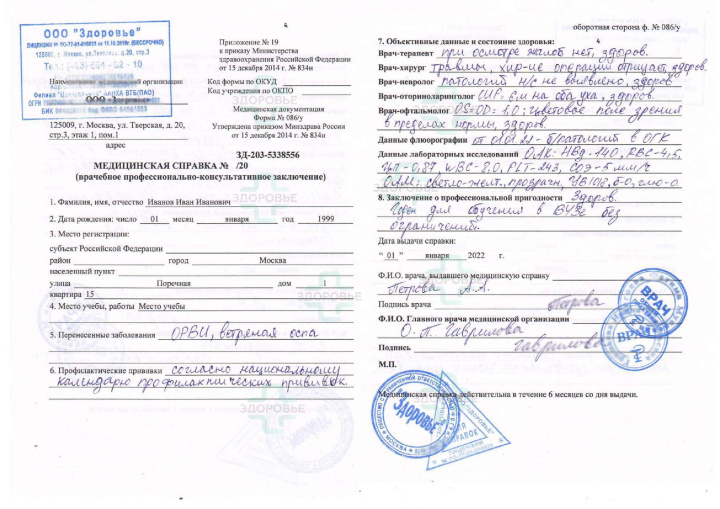 4
ООО "Здоровье"
125009, г. Москва, ул. Тверская, д. 20, стр.3
организации
ООО
125009, г. Москва, ул. Тверская, д. 20,
стр.3, этаж 1, пом.1
адрес
Приложение № 19
к приказу Министерства
здравоохранения Российской Федерации
от 15 декабря 2014 г. № 834н
Код формы по ОКУД
Код учреждения по ОКПО
ЗДОРОВЬЕ
Медицинская документация
Форма № 086/у
Утверждена приказом Минздрава России
от 15 декабря 2014 г. № 834н
ЗД-203-5338556
МЕДИЦИНСКАЯ СПРАВКА № /20
(врачебное профессионально-консультативное заключение)
1. Фамилия, имя, отчество Иванов Иван Иванович
ЗДОРОВЬЕ
2. Дата рождения: число 01 месяц января год 1999
3. Место регистрации:
субъект Российской Федерации
район город Москва
населенный пункт
улица Поречная дом 1
квартира 15
ЗДОРОВЬЕ
4. Место учебы, работы Место учебы
5. Перенесенные заболевания ОРВИ, ветряная оспа
6. Профилактические прививки согласно национальному
календарю профилактических прививок.
ЗДОРОВЬЕ
оборотная сторона ф. № 086/у
4
7. Объективные данные и состояние здоровья:
Врач-терапевт при осмотре жалоб нет, здоров.
Врач-хирург травмы, хир-ие операции отрицает, здоров.
Врач-невролог патологий н/с не выявлено, здоров
Врач-оториноларинголог 6м на оба уха, здоров.
Врач-офтальмолог OS=OD= 1.0; цветовое поле зрения
в пределах нормы, здоров.
Данные флюорографии от 01.01.21 - б/патологий в ОГК
Данные лабораторных исследований ОАК: HBg-140, RBC-4,5,
WBC-8.0, PLT-243, СОЭ-5 мм/ч
ОАМ: светло-желт., прозрачн,
8. Заключение о профессиональной пригодности Здоров.
Годен для обучения в ВУЗе без
ограничений.
Дата выдачи справки:
" 01 " января 2022 г.
Ф.И.О. врача, выдавшего медицинскую справку
Петрова А.А.
Подпись врача Петрова
Ф.И.О. Главного врача медицинской организации
О. П. Гаврилова
Подпись Гаврилова
М.П.
ВРАЧ
ВРАЧ
Медицинская справка действительна в течение 6 месяцев со дня выдачи.
ЗДОРОВЬЕ
МОСКВА